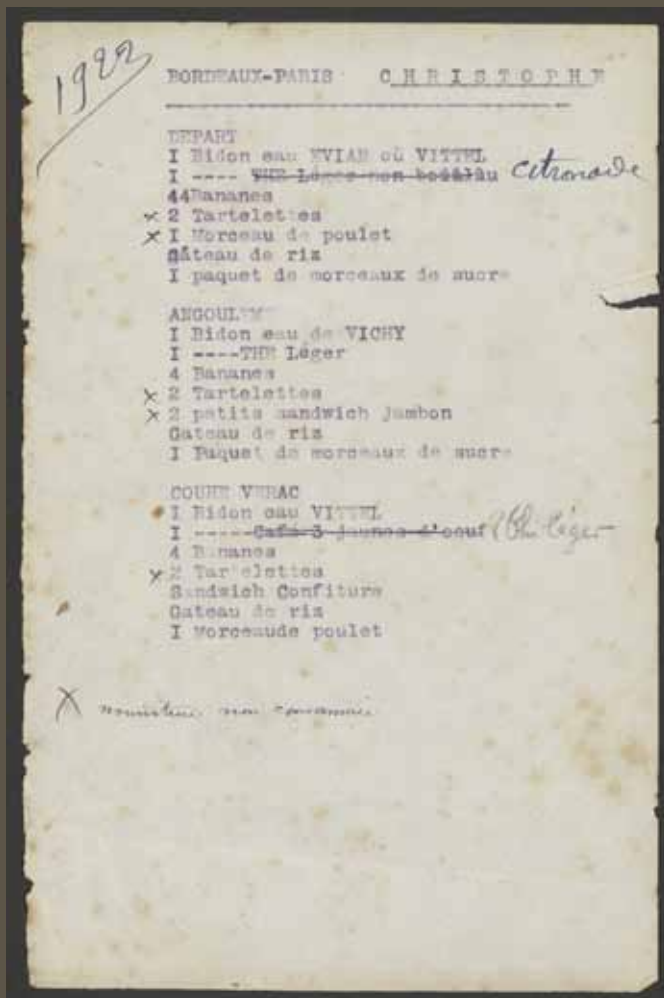 1922
BORDEAUX-PARIS CHRISTOPHE
DEPART
I Bidon eau EVIAN où VITTEL
I ---- THE Léger non Citronade
44Bananes
x 2 Tartelettes
x I Morceau de poulet
Gâteau de riz
I paquet de morceaux de sucre
ANGOULEME
I Bidon eau de VICHY
I ----THE Léger
4 Bananes
x 2 Tartelettes
x 2 petits sandwich Jambon
Gateau de riz
I Paquet de morceaux de sucre
COUHE VERAC
I Bidon eau VITTEL
I -----Café 3 jaunes d'oeuf Thé léger
4 Bananes
x 2 Tartelettes
Sandwich Confiture
Gateau de riz
I Morceaude poulet
X nourriture non consommée